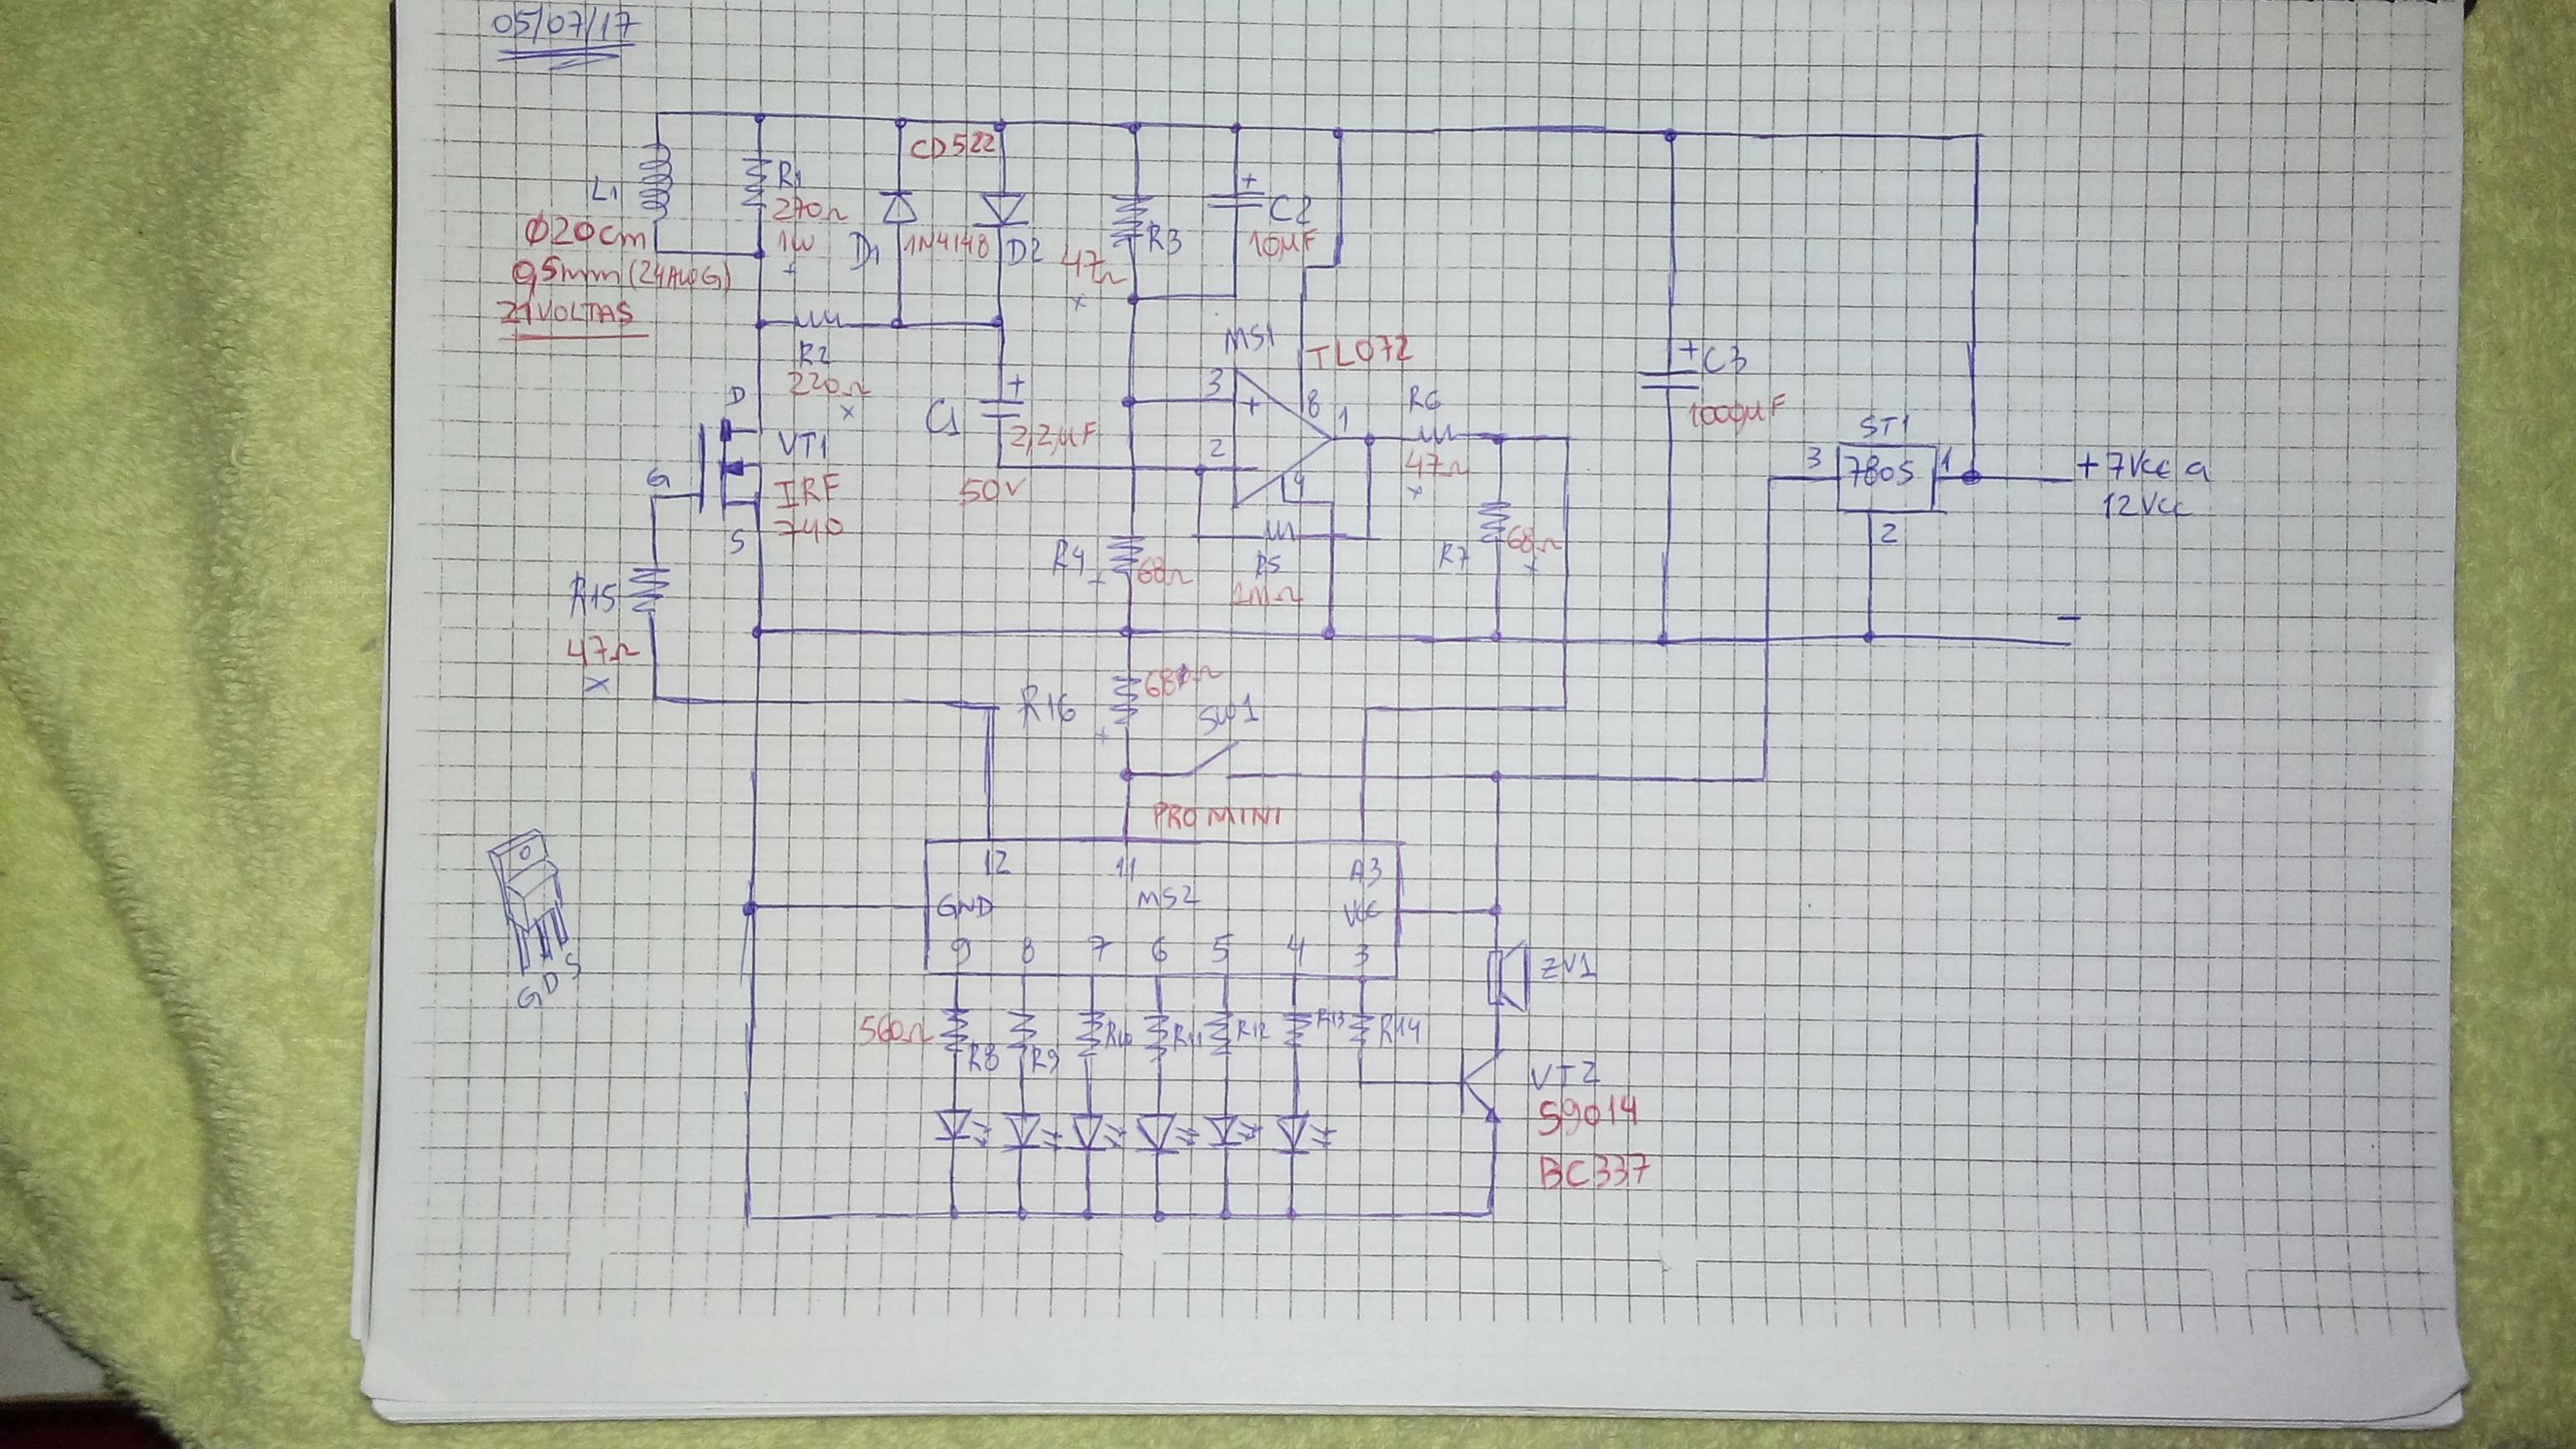 05/07/17
CD522
L1
R1
270Ω
1W
Ø20cm
0,5mm (24AWG)
21 VOLTAS
D1
1N4148
D2
R3
47Ω
x
+
C2
10µF
R2
220Ω
x
MS1
TL072
+
C1
2,2µF
50V
3
+
2
8
1
4
R6
47Ω
x
+
C3
1000µF
ST1
3
7805
1
2
+7Vcc a
12Vcc
-
D
G
S
VT1
IRF
740
R4
68Ω
R5
1MΩ
R7
68Ω
R15
47Ω
x
R16
SW1
PRO MINI
12
11
A3
GND
MS2
VCC
9 8 7 6 5 4 3
ZV1
560Ω
R8
R9
R10
R11
R12
R13
R14
VT2
S9014
BC337
G D S